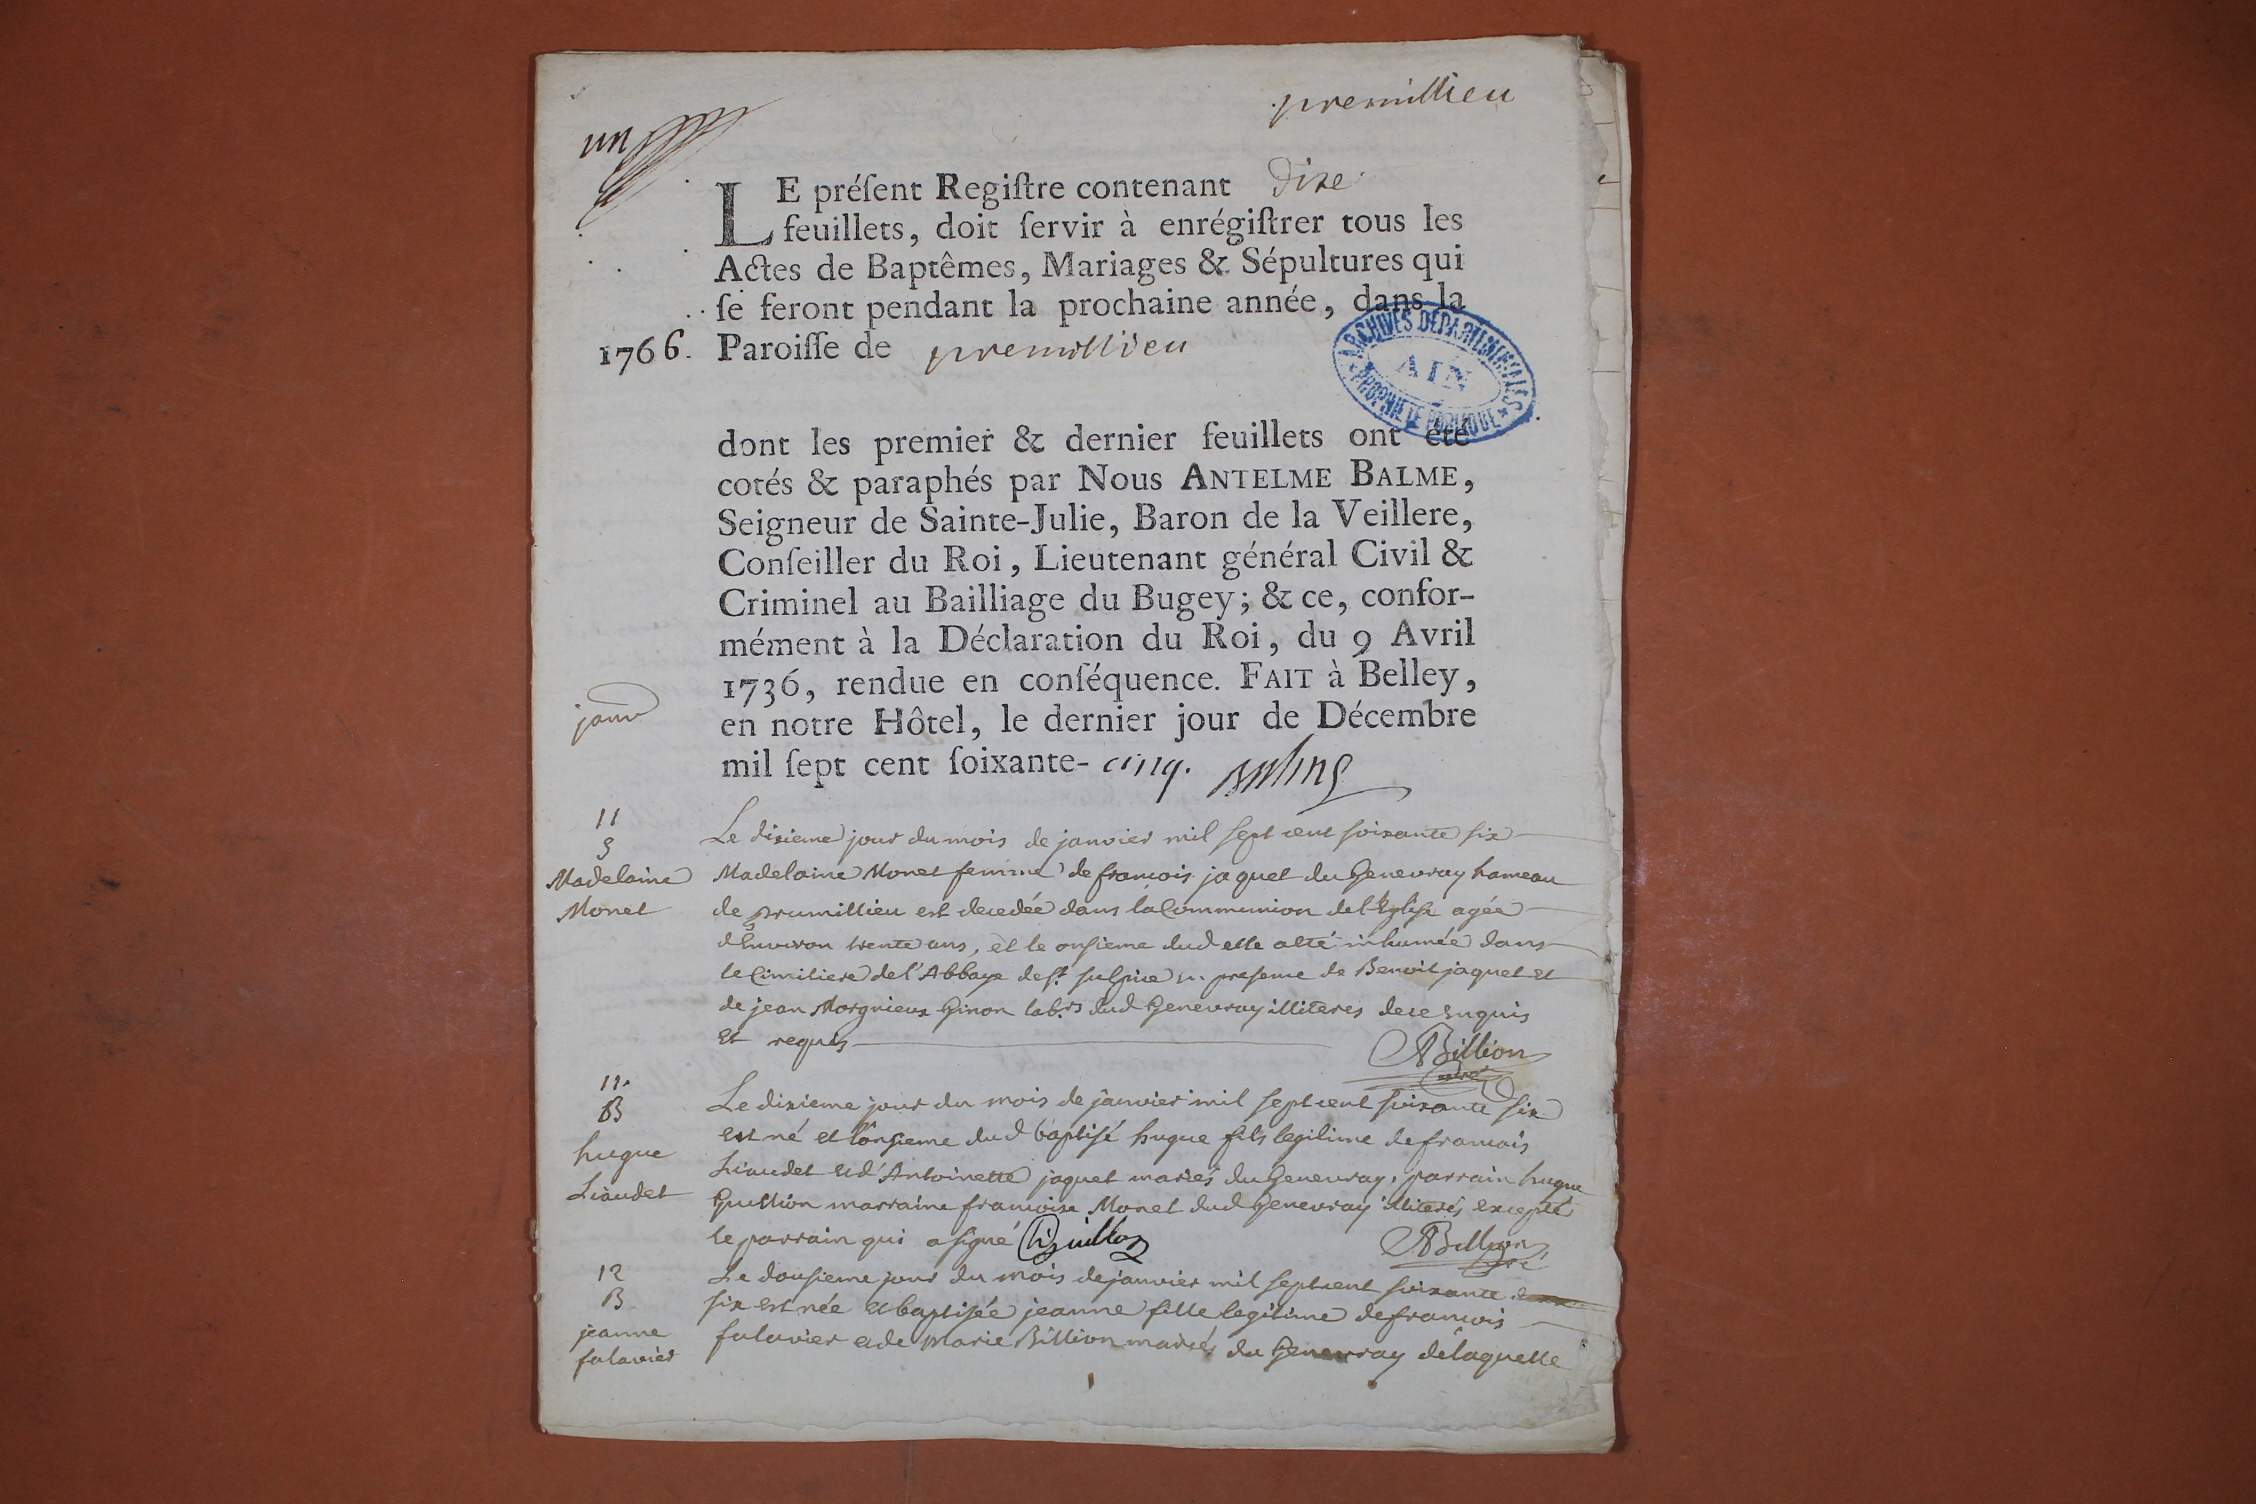 premillieu
un
LE préſent Regiſtre contenant dixe
feuillets, doit ſervir à enrégiſtrer tous les
Actes de Baptêmes, Mariages & Sépultures qui
ſe feront pendant la prochaine année, dans la
1766. Paroiſſe de premillieu
ARCHIVES DÉPARTEMENTALES
AIN
PROPRIÉTÉ PUBLIQUE
dont les premier & dernier feuillets ont été
cotés & paraphés par Nous ANTELME BALME,
Seigneur de Sainte-Julie, Baron de la Veillere,
Conſeiller du Roi, Lieutenant général Civil &
Criminel au Bailliage du Bugey; & ce, confor-
mément à la Déclaration du Roi, du 9 Avril
1736, rendue en conſéquence. FAIT à Belley,
en notre Hôtel, le dernier jour de Décembre
mil ſept cent ſoixante- cinq.
janv
11
S
Madelaine
Monet
Le dixieme jour du mois de janvier mil sept cent soixante six
Madelaine Monet femme de francois jaquet du Genevray hameau
de prumillieu est decedée dans la Communion de l'Eglise agée
d'Environ trente ans, et le onsieme dud elle a été inhumée dans
le Cimitiere de l'Abbaye de st. sulpice en presence de Benoit jaquet et
de jean Morgnieux Ginon lab.rs dud Genevray illiteres de ce enquis
et requis
Billion
11.
B
hugue
Liaudet
Le dixieme jour du mois de janvier mil sept cent soixante six
est né et l'onsieme dud baptisé hugue fils legitime de francois
Liaudet et d'Antoinette jaquet mariés du Genevray, parrain hugue
Guillion marraine francoise Monet dud Genevray illiterés excepté
le parrain qui a signé
Billion
12
B
jeanne
falavier
Le dousieme jour du mois de janvier mil sept cent soixante
six est née et baptisée jeanne fille legitime de francois
falavier et de Marie Billion mariés du Genevray de laquelle